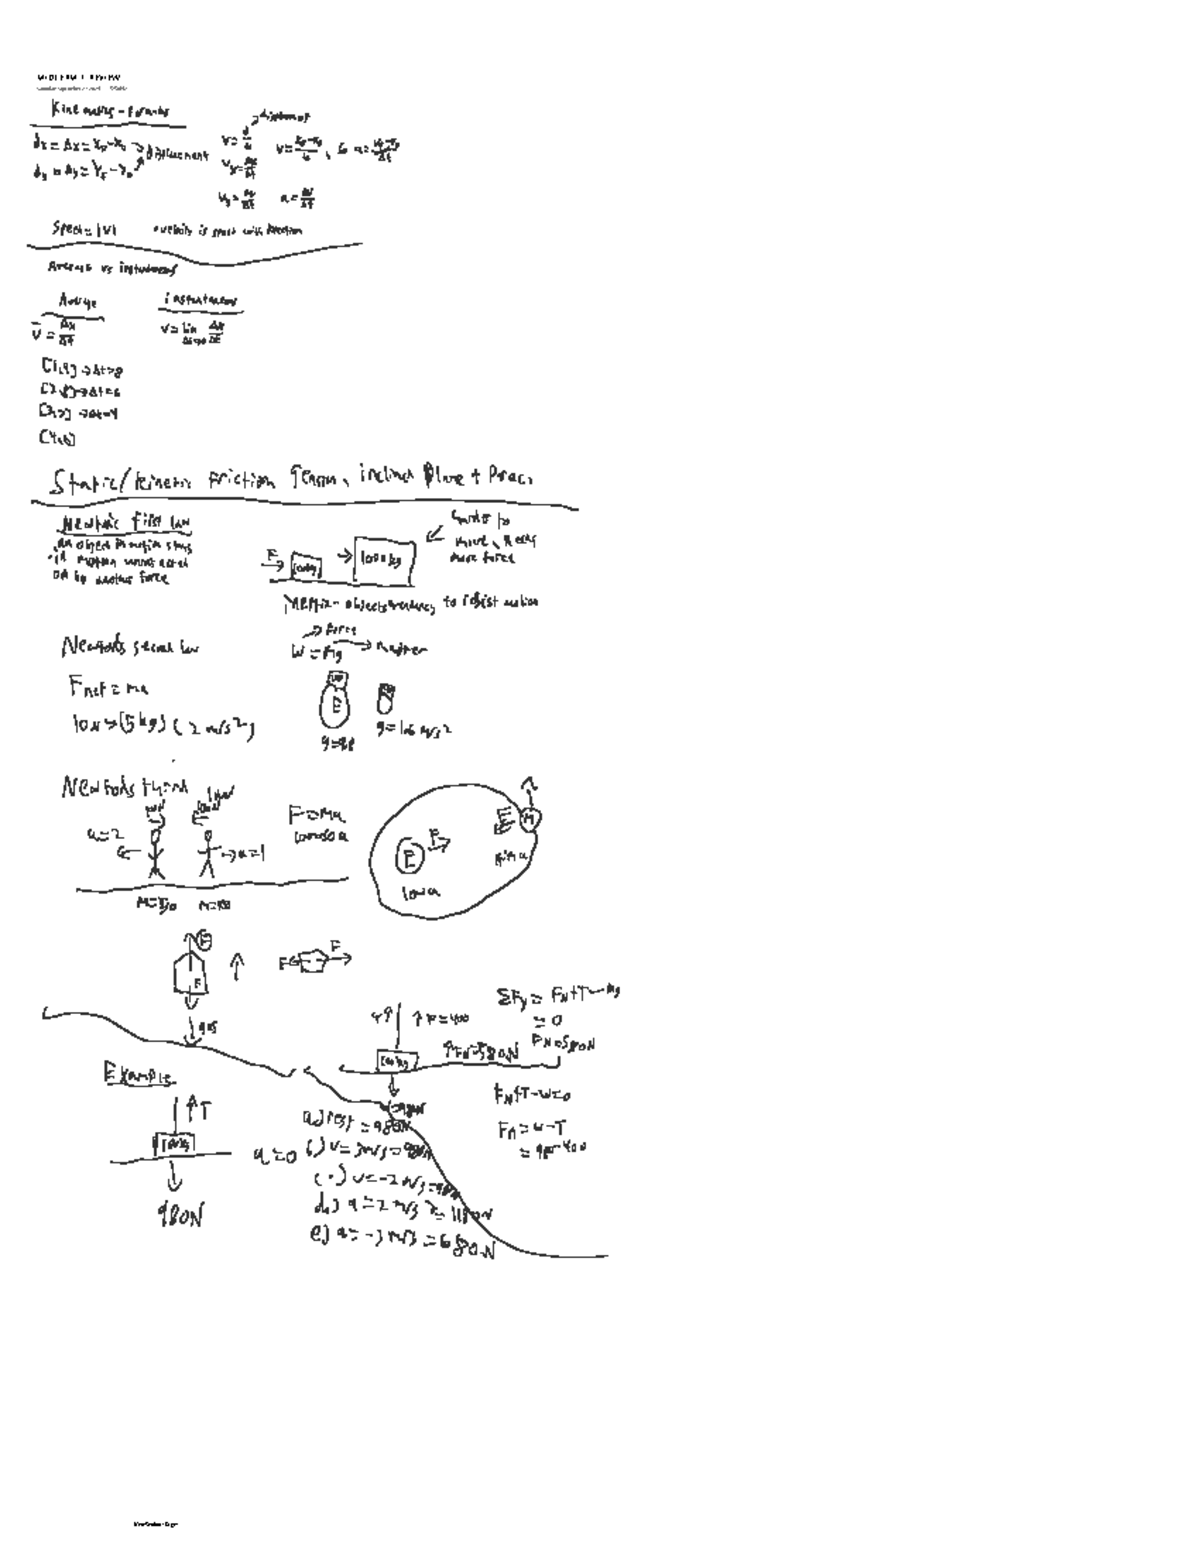 MIDTERM 1 REVIEW
Kinematics - Formulas
dx = Δx = xF - x0 → displacement
dy = Δy = YF - Y0
distance
V = d/t
Vx = Δx/Δt
Vy = Δy/Δt
a = ΔV/Δt
Speed = |V|
velocity is speed with direction
Average vs instantaneous
Average
V̄ = Δx/Δt
instantaneous
V = lim Δt→0 Δx/Δt
[1,9] → Δt=8
[2,8] → Δt=6
[3,7] → Δt=4
[4,6]
Static/kinetic friction, Tension, inclined Plane + Praci
Newtons first law
An object in motion stays
in motion unless acted
on by another force
F
10kg
1000kg
harder to
move, needs
more force
Inertia - objects tendency to resist motion
Newtons second law
Force
W = mg
Fnet = ma
10N → (5kg)(2 m/s²)
E
g=9.8
g=1.6 m/s²
Newtons third
100N
a=2
a=1
M=50
M=100
F=ma
E
F
low a
M
high a
F
F
F
F
Example
T
100kg
980N
a=0
T
F=400
100kg
FN=580N
ΣFy = FN+T-mg
= 0
FN=580N
FN+T-w=0
FN = w-T
= 980-400
a.) rest = 980N
b.) v = 3m/s = 980N
c.) v = -2 m/s = 980N
d.) a = 2 m/s² = 1180N
e.) a = -3 m/s = 680N